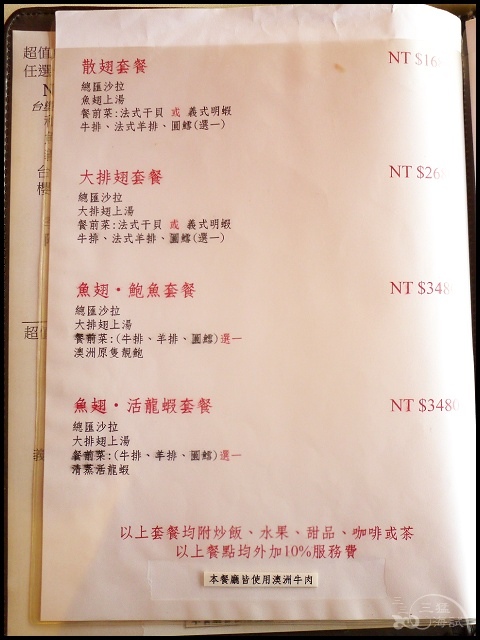 散翅套餐 NT $16
總匯沙拉
魚翅上湯
餐前菜:法式干貝 或 義式明蝦
牛排、法式羊排、圓鱈(選一)
大排翅套餐 NT $26
總匯沙拉
大排翅上湯
餐前菜:法式干貝 或 義式明蝦
牛排、法式羊排、圓鱈(選一)
魚翅·鮑魚套餐 NT $348
總匯沙拉
大排翅上湯
餐前菜:(牛排、羊排、圓鱈)選一
澳洲原隻靚鮑
魚翅·活龍蝦套餐 NT $3480
總匯沙拉
大排翅上湯
餐前菜:(牛排、羊排、圓鱈)選一
清蒸活龍蝦
以上套餐均附炒飯、水果、甜品、咖啡或茶
以上餐點均外加10%服務費
本餐廳皆使用澳洲牛肉
超值
任選
台
超值